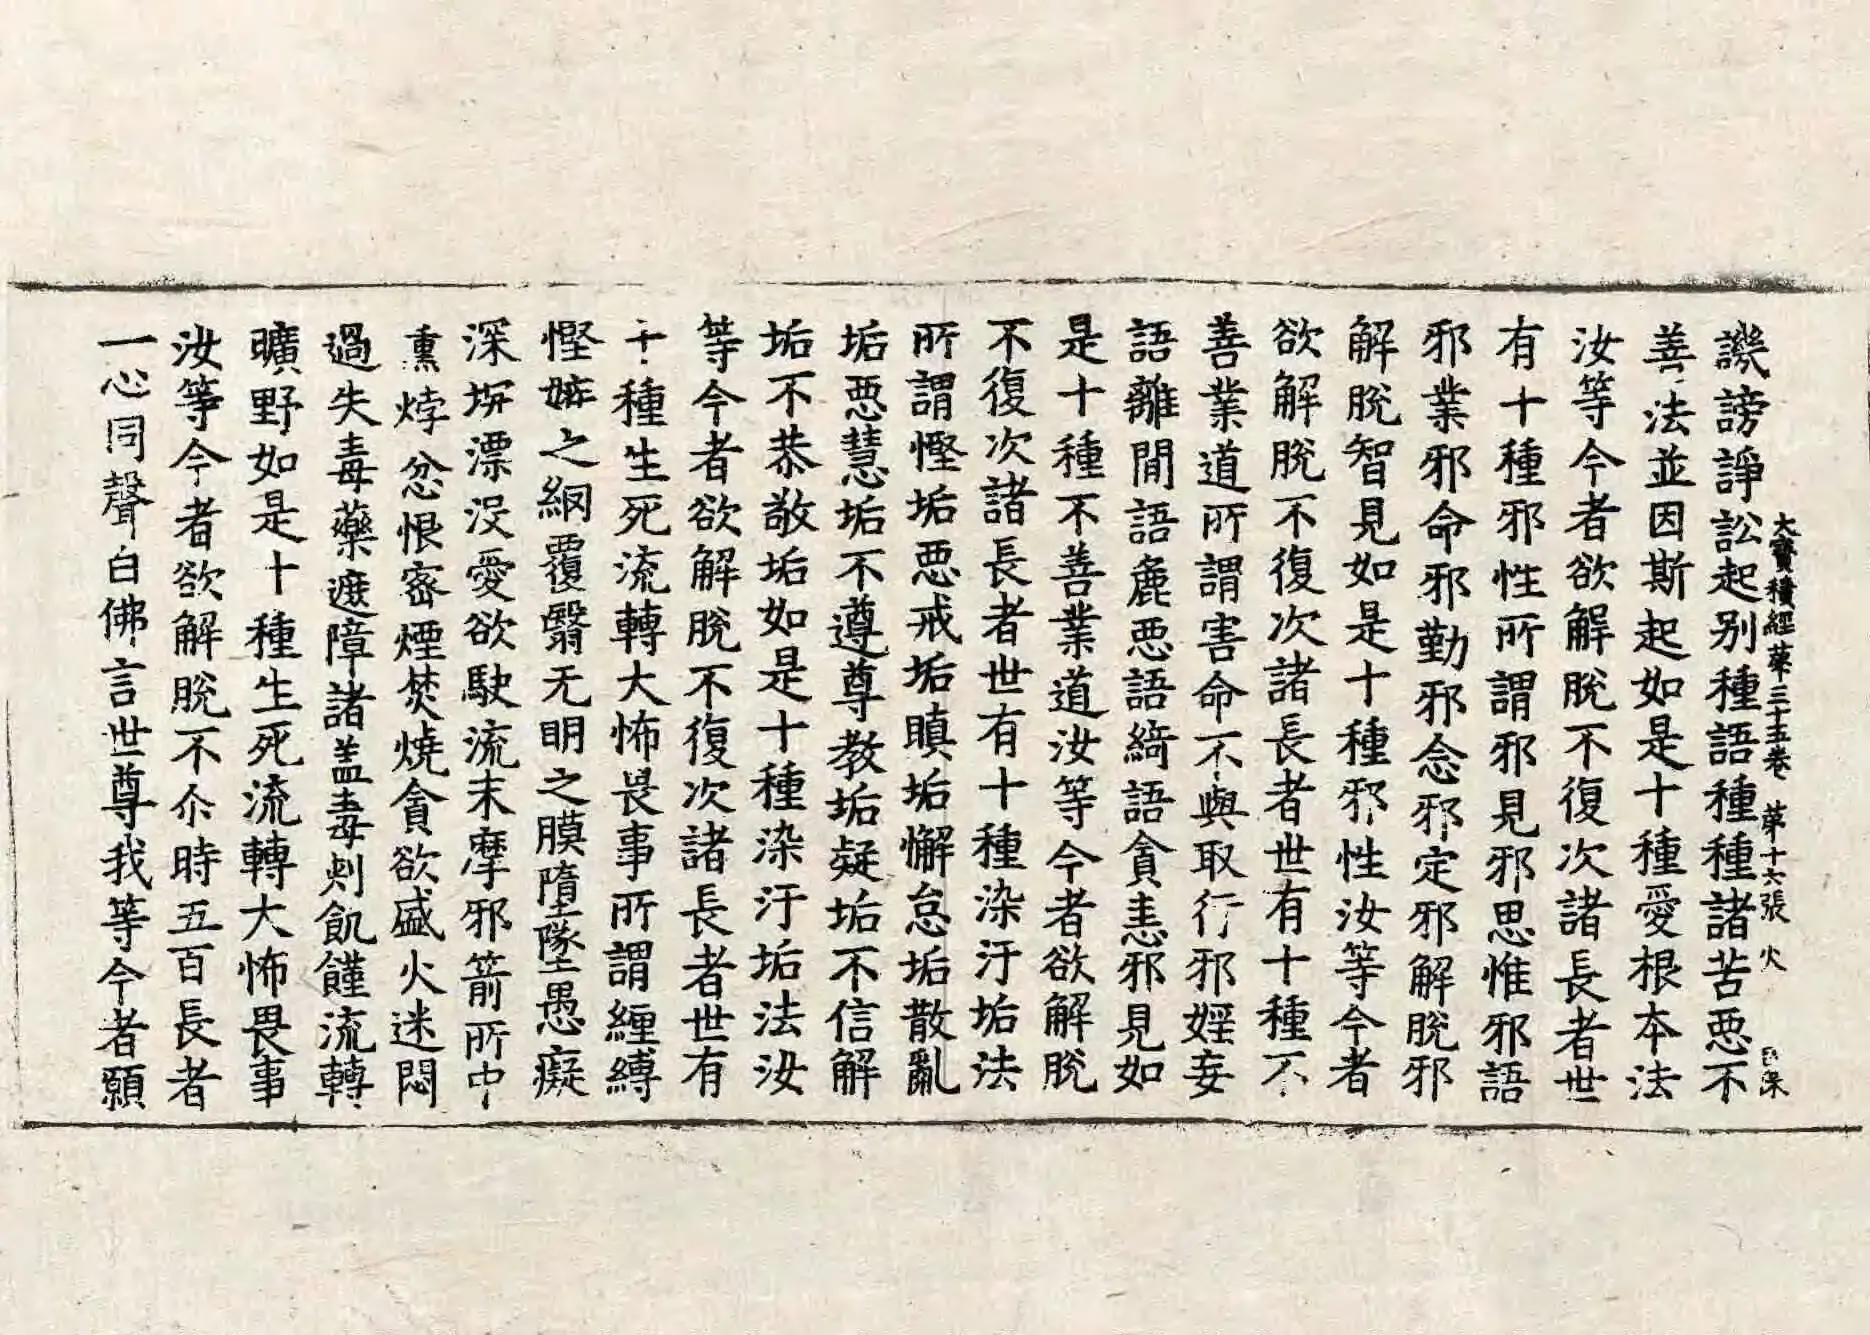 大寶積經第三十五卷 第十六張 火
譏謗諍訟起别種語種種諸苦惡不
善法並因斯起如是十種愛根本法
汝等今者欲解脫不復次諸長者世
有十種邪性所謂邪見邪思惟邪語
邪業邪命邪勤邪念邪定邪解脫邪
解脫智見如是十種邪性汝等今者
欲解脫不復次諸長者世有十種不
善業道所謂害命不與取行邪婬妄
語離間語麁惡語綺語貪恚邪見如
是十種不善業道汝等今者欲解脫
不復次諸長者世有十種染汙垢法
所謂慳垢惡戒垢瞋垢懈怠垢散亂
垢惡慧垢不遵尊教垢疑垢不信解
垢不恭敬垢如是十種染汙垢法汝
等今者欲解脫不復次諸長者世有
十種生死流轉大怖畏事所謂纏縛
慳嫉之網覆翳无明之膜墮墜愚癡
深坑漂沒愛欲駛流末摩邪箭所中
熏㶿忿恨密煙焚燒貪欲盛火迷悶
過失毒藥遮障諸蓋毒刺飢饉流轉
曠野如是十種生死流轉大怖畏事
汝等今者欲解脫不尒時五百長者
一心同聲白佛言世尊我等今者願